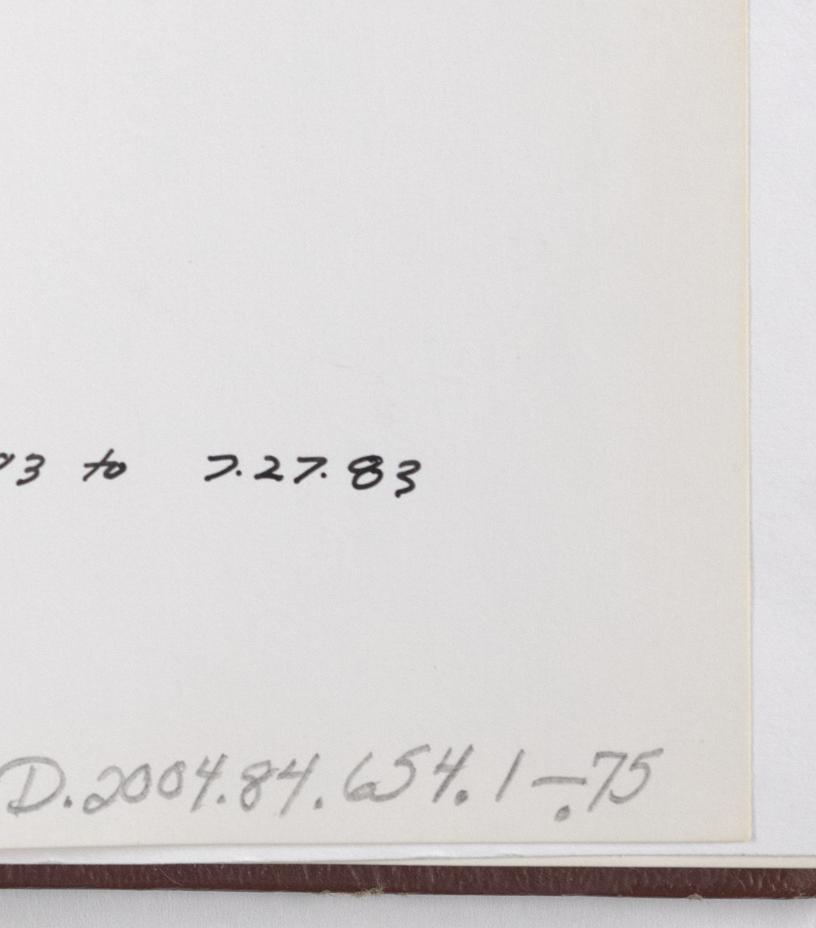 3 to 7.27.83
D.2004.84.654.1-.75